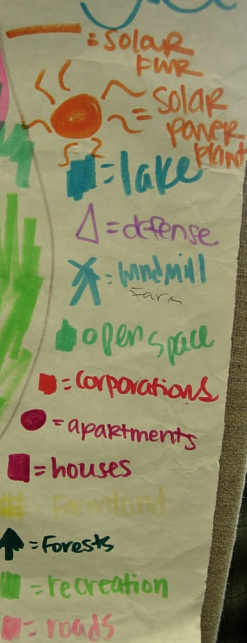 = solar
pwr
= solar
power
plant
= lake
= defense
= windmill
Farm
open space
= corporations
= apartments
= houses
= farmland
= Forests
= recreation
= roads